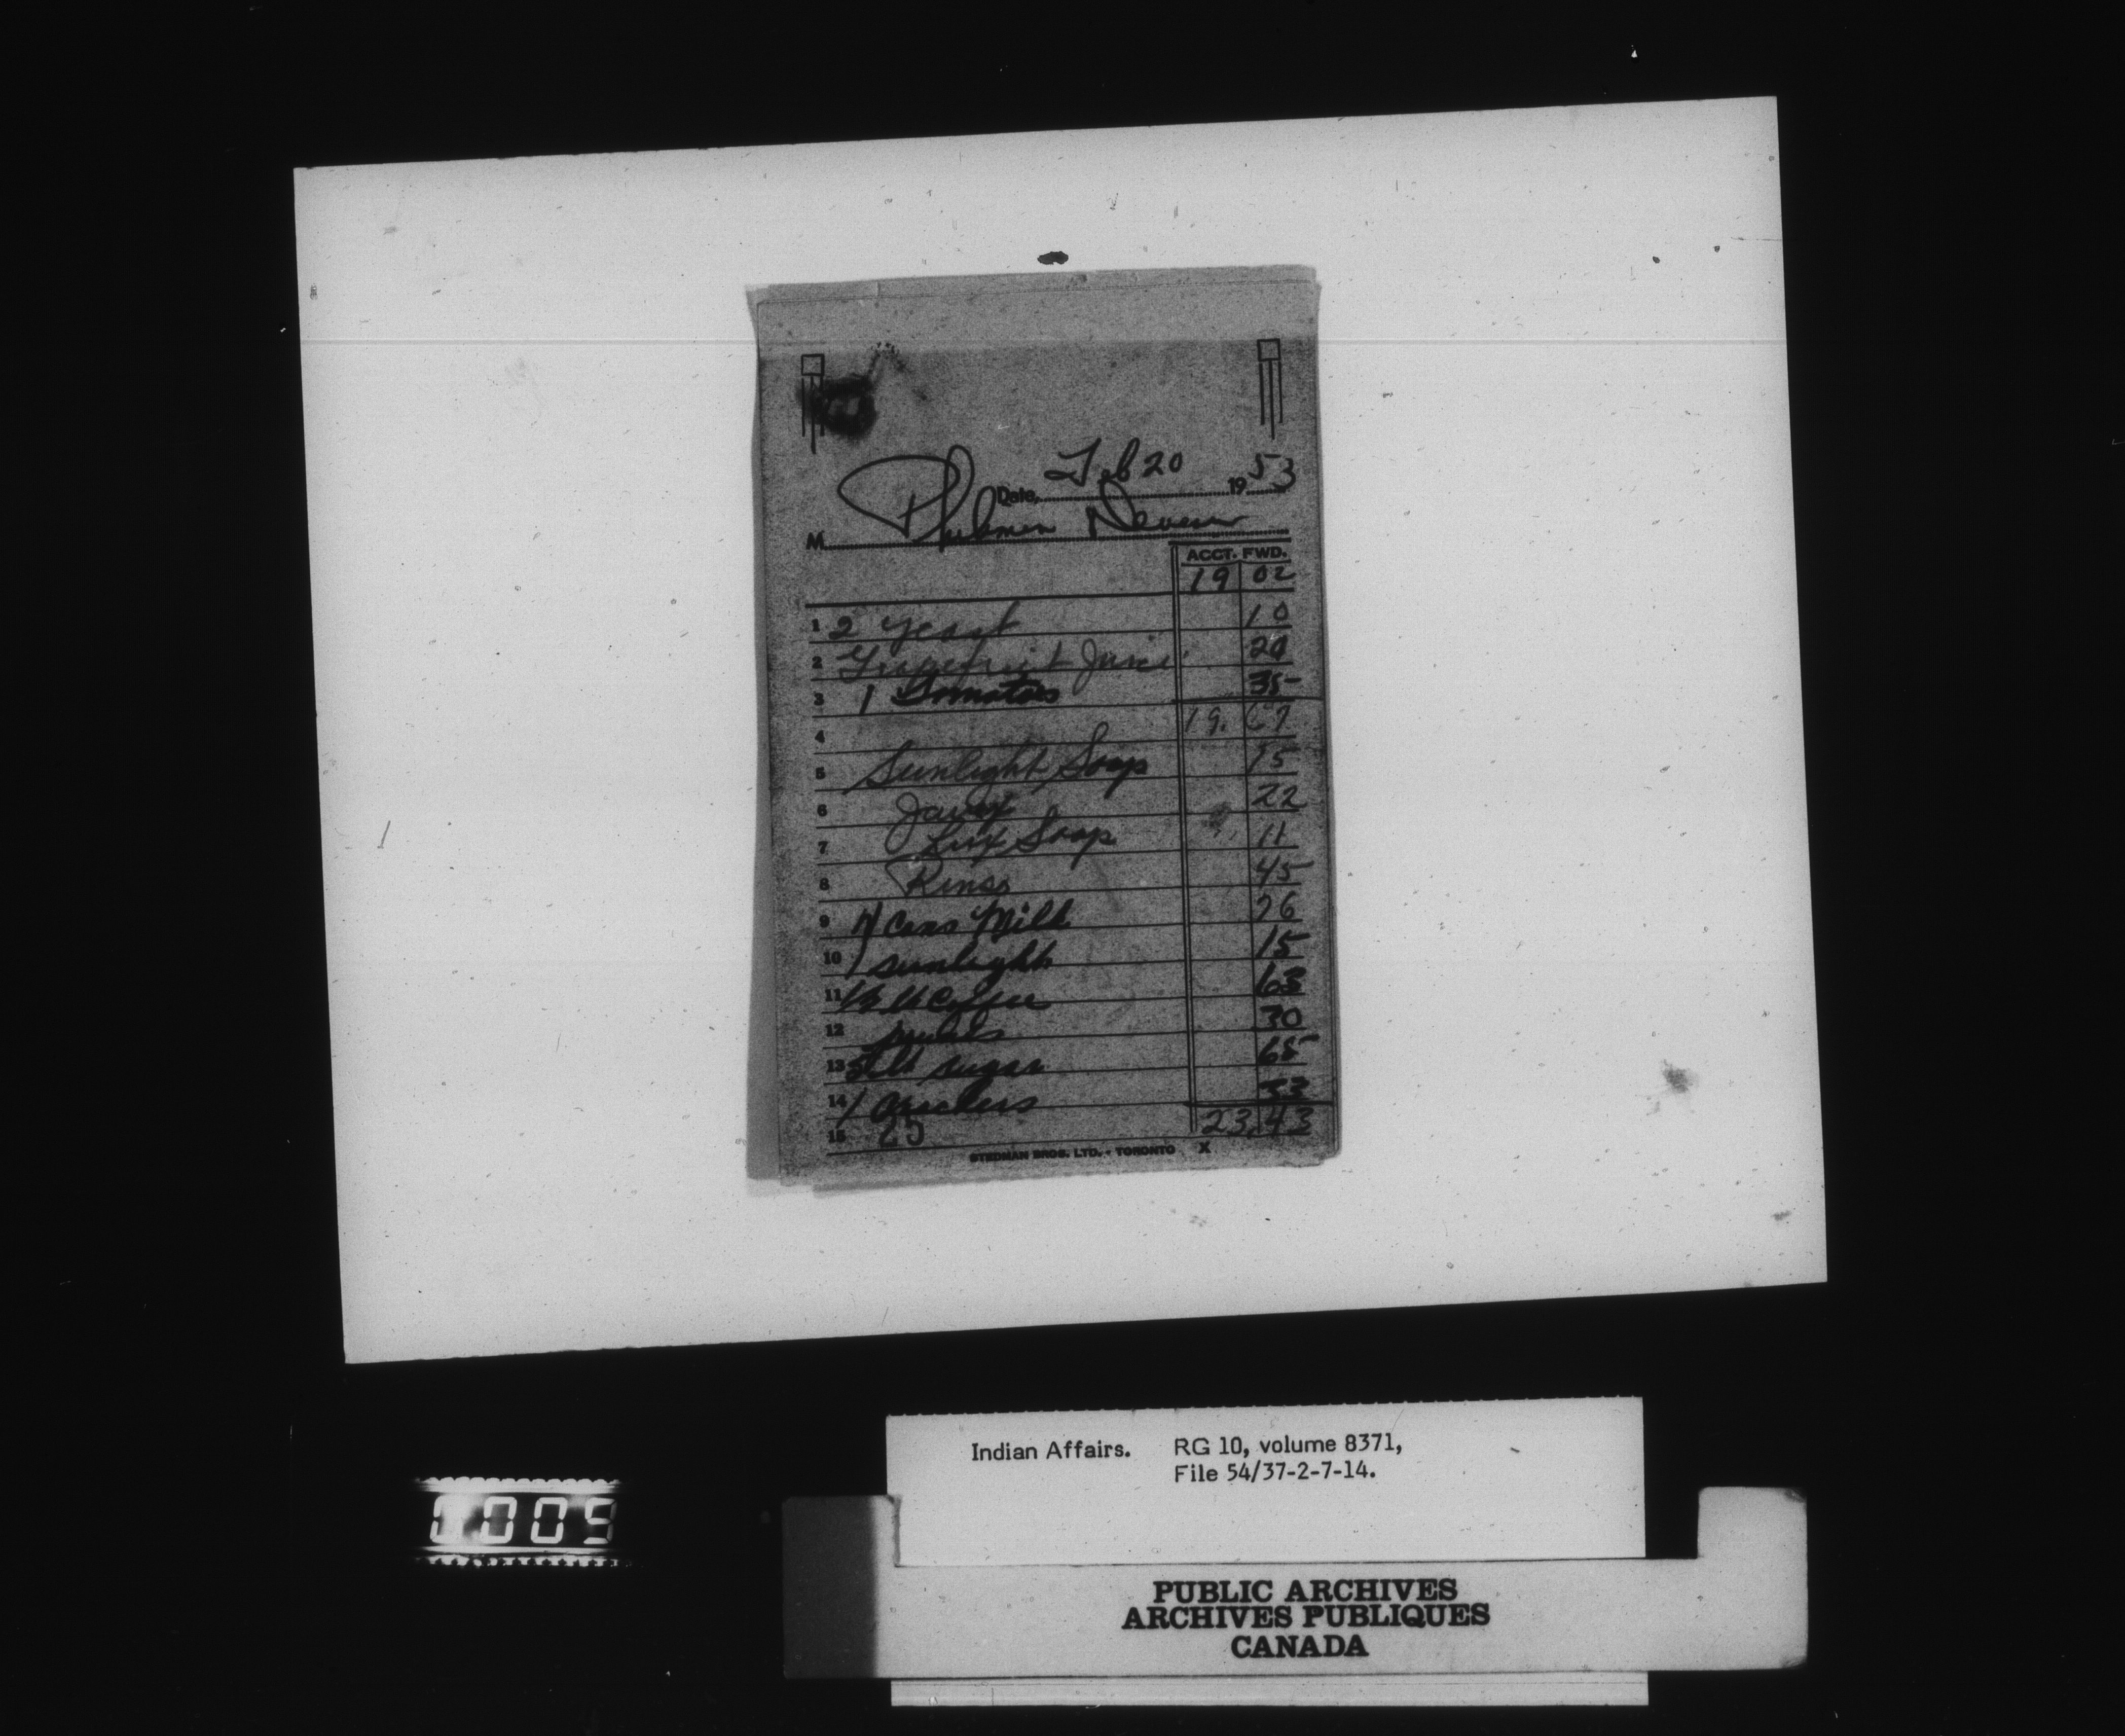 Date, Feb 20 19 53
M. Philomen
ACCT. FWD.
19 02
1 2 yeast 10
2 Grapefruit Juice 20
3 1 Tomatoes 35
4 19. 67
5 Sunlight Soap 15
6 Javex 22
7 Lux Soap 11
8 Rinso 45
9 Cans Milk 76
10 1 sunlight 15
11 1/2 lb Coffee 63
12 30
13 5 lb sugar 65
14 1 Crackers 33
15 25 23.43
STEDMAN BROS. LTD. - TORONTO X
Indian Affairs. RG 10, volume 8371,
File 54/37-2-7-14.
0005
PUBLIC ARCHIVES
ARCHIVES PUBLIQUES
CANADA